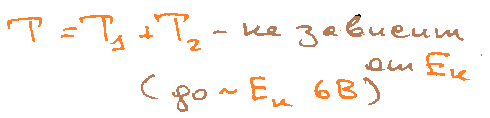 T = T₁ + T₂ - не зависит
от Eк
(до ~ Eк 6В)